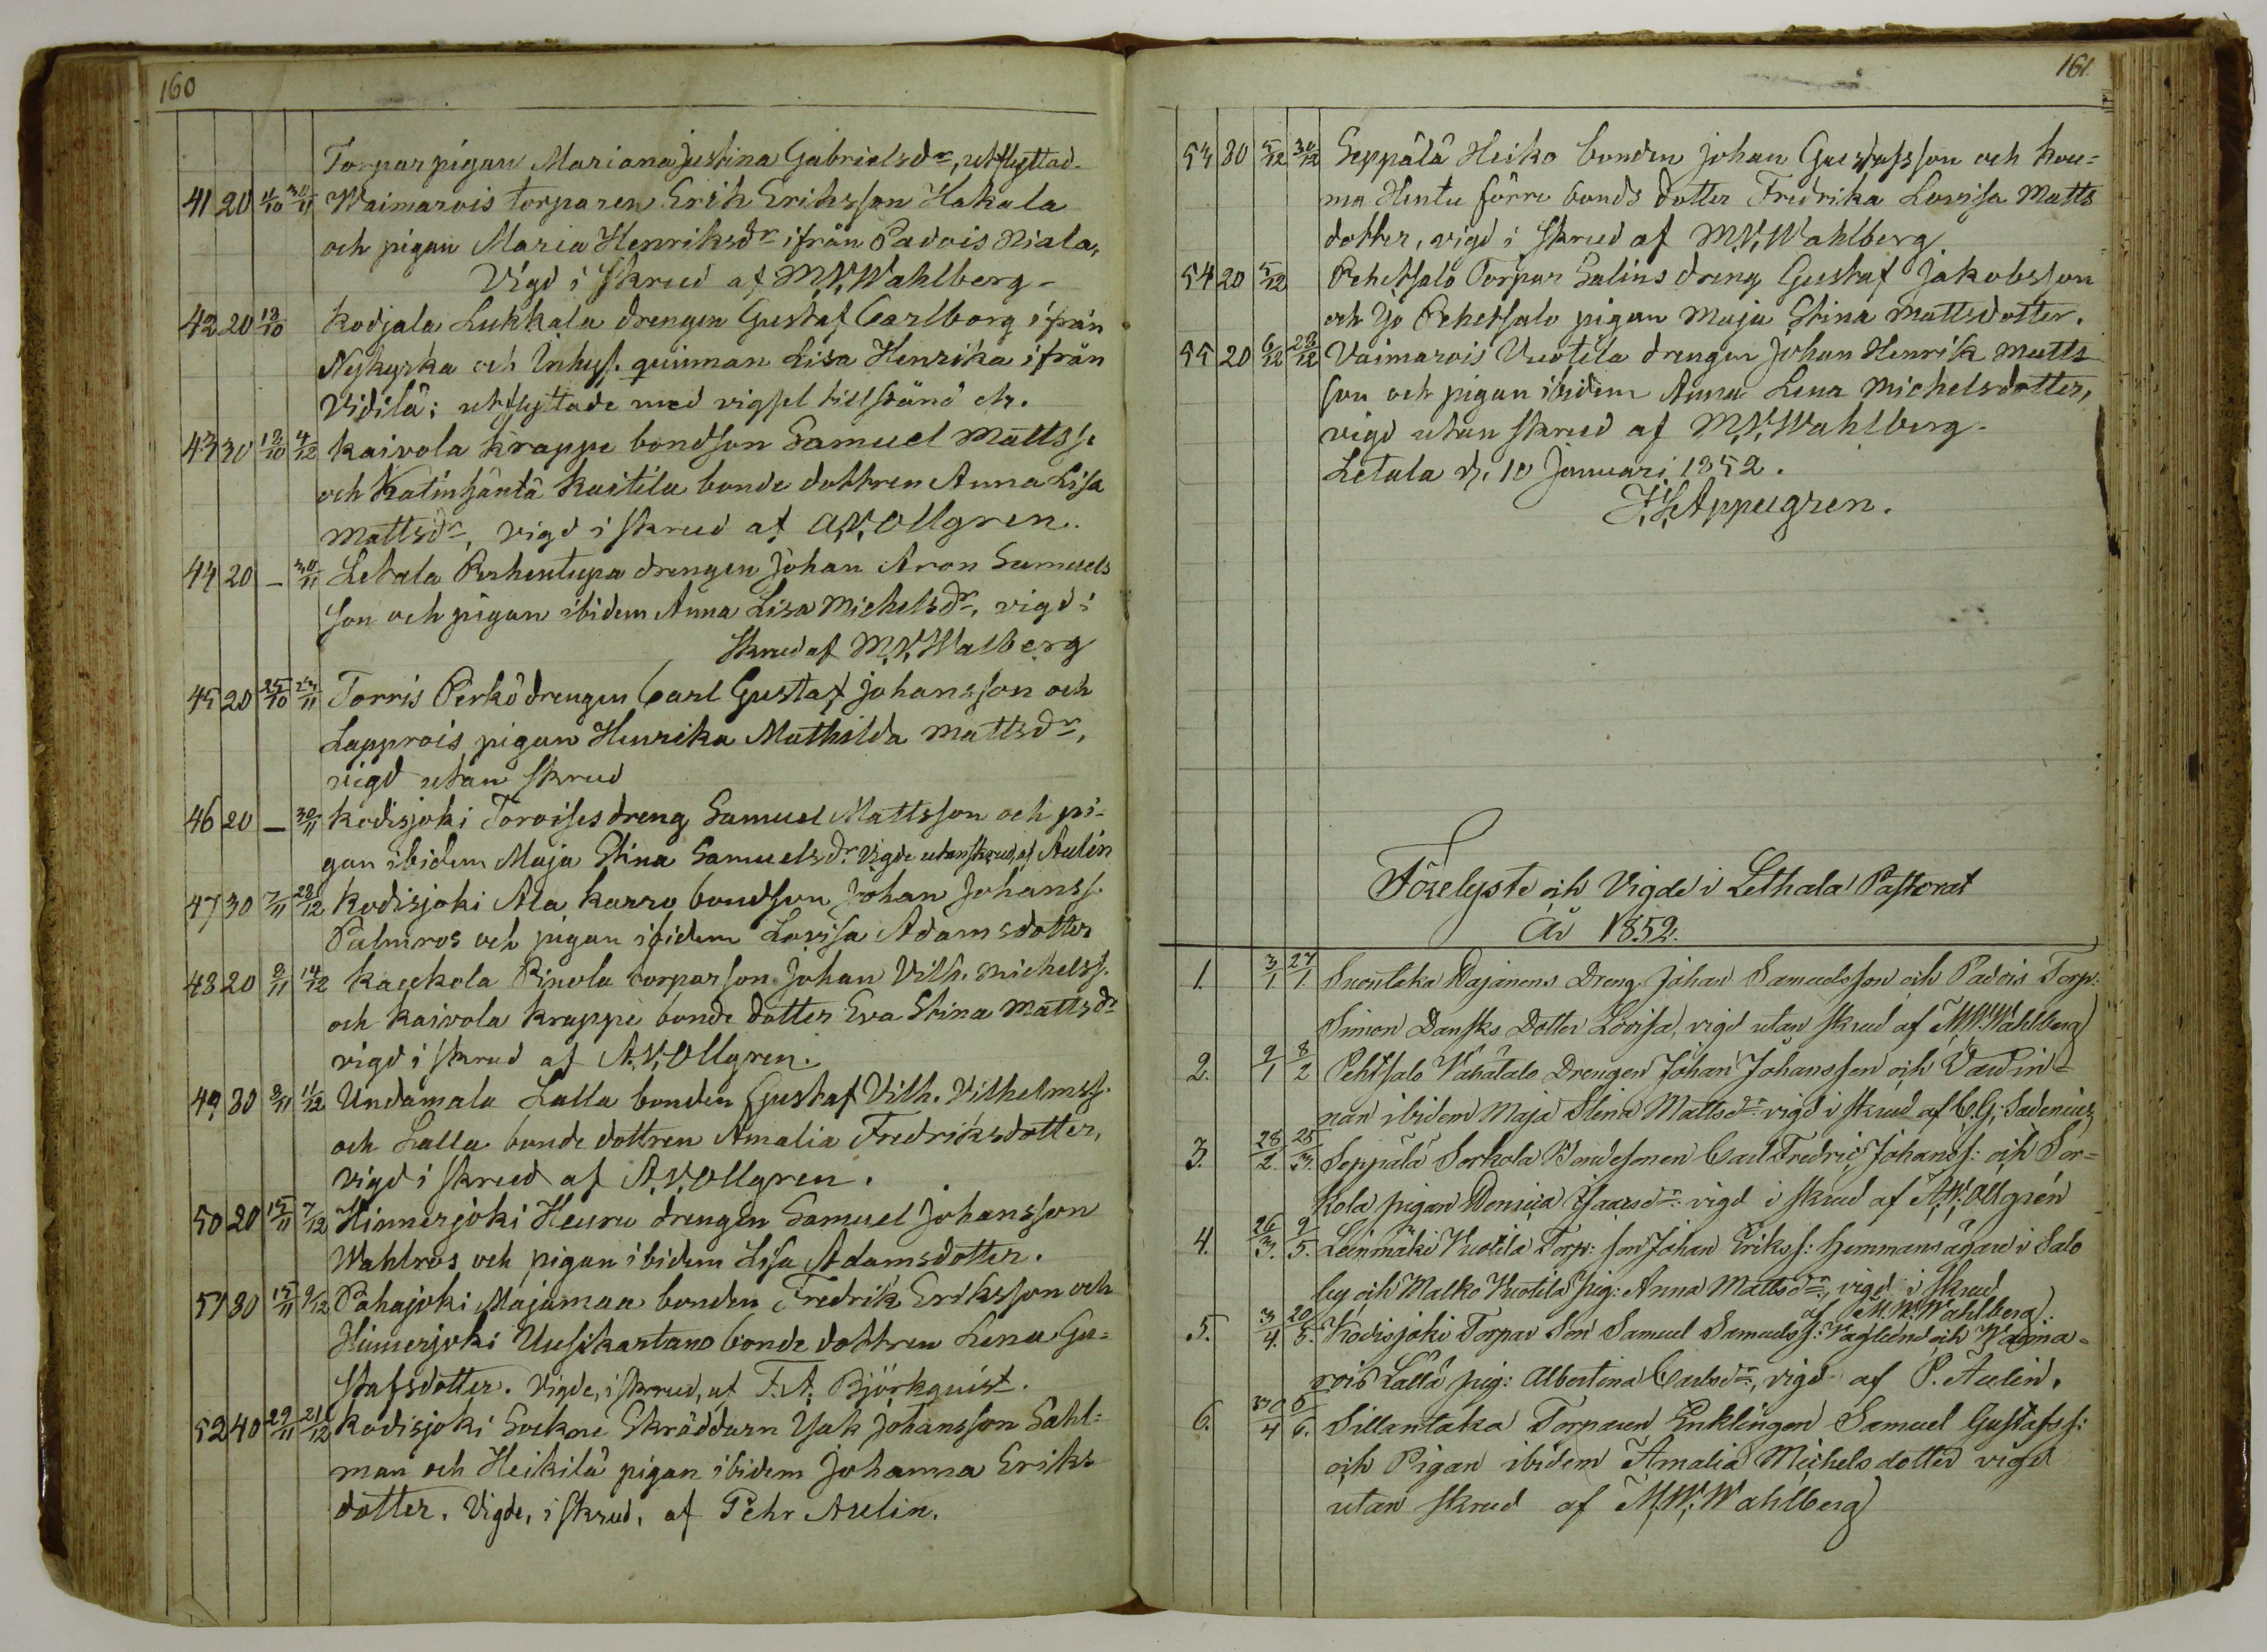 160
Torpar pigan Mariana Justina Gabrielsdr, utflyttad.
41 20 11/10 30/11 Waimarois torparen Erik Eriksson Hakala
och pigan Maria Henriksdr ifrån Padois Niala,
Vigd i skrud af M.V. Wahlberg.
42 20 12/10 Kodjala Lukkala drengen Gustaf Carlborg ifrån
Nykyrka och Inhys. quinnan Lisa Henrika ifrån
Vidilä; utflyttade med vigsel tillstånd etc.
43 30 12/10 4/12 Kaivola Krappe bondson Samuel Mattss.
och Katinhäntä Kastila bonde dottren Anna Lisa
Mattsdr, vigd i skrud af A.V. Ollgren.
44 20 – 30/11 Letala Perhentupa drengen Johan Aron Samuels
son och pigan ibidem Anna Lisa Michelsdr, vigd i
skrud af M.V. Walberg
45 20 25/10 23/11 Torris Perkö drengen Carl Gustaf Johansson och
Lapprois pigan Henrika Mathilda Mattsdr,
vigd utan skrud
46 20 – 30/11 Kodisjoki Torvises dreng Samuel Mattsson och pi-
gan ibidem Maja Stina Samuelsdr. Vigde utan skrud, af Aulin
47 30 7/11 28/12 Kodisjoki Ala Karro bondson Johan Johanss.
Palmros och pigan ibidem Lovisa Adamsdotter
48 20 9/11 14/12 Kaukola Pinola torparson Johan Vilh. Michelss.
och Kaivola Krappe bonde dotter Eva Stina Mattsdr
vigd i skrud af A.V. Ollgren.
49 30 9/11 11/12 Undamala Lalla bonden Gustaf Vilh. Vilhelmss.
och Lalla bonde dottren Amalia Fredriksdotter,
vigd i skrud af A.V. Ollgren.
50 20 15/11 7/12 Hinnerjoki Heuru drengen Samuel Johansson
Wahlros och pigan ibidem Lisa Adamsdotter.
51 30 15/11 9/12 Pahajoki Majamaa bonden Fredrik Eriksson och
Hinnerjoki Uusikartano bonde dottren Lena Gu-
stafsdotter. Vigde, i skrud, af F.A. Björkquist.
52 40 29/11 21/12 Kodisjoki Sockne Skräddarn Isak Johansson Sahl-
man och Heikilä pigan ibidem Johanna Eriks
dotter. Vigde, i skrud, af Pehr Aulin.
161.
53 30 5/12 30/12 Seppälä Heiko bonden Johan Gustafsson och Kou-
ma Hentu förre bonds dotter Fredrika Lovisa Matts
dotter, vigd i skrud af M.V. Wahlberg.
54 20 5/12 Pehetsalo Torpar Salins dreng Gustaf Jakobsson
och Yö Pehetsalo pigan Maja Stina Mattsdotter.
55 20 6/12 28/12 Vaimarois Vuotila drengen Johan Henrik Matts
son och pigan ibidem Anna Lena Michelsdotter,
vigd utan skrud af M.V. Wahlberg.
Letala d. 10 Januari 1852.
Appelgren.
Förelyste och Vigde i Lethala Pastorat
År 1852.
1. 3/1 27/1. Suontaka Pajanens Dreng Johan Samuelsson och Padois Torp:
Simon Dansks Dotter Lovisa, vigd utan skrud af M.W. Wahlberg
2. 9/1 8/2 Pehtsalo Vähätalo Drengen Johan Johansson och Värdin-
nan ibidem Maja Stina Mattsdr. vigd i skrud af C.G. Sadenius
3. 28/2. 25/3. Seppälä Sorkola Bondesonen Carl Fredric Johanss: och Sor-
kola pigan Isaacsdr. vigd i skrud af A.W. Ollgrén
4. 26/3. 9/5. Leinmäki Vuotila Torp: son Johan Erikss: Hemmansägare i Salo
by och Malko Vuotila pig: Anna Mattsdr, vigd i skrud
af M.W. Wahlberg.
5. 3/4. 20/5. Kodisjoki Torpar Son Samuel Samuelss: Vaglund och Waima-
rois Lalla pig: Albertina Carlsdr, vigd af P. Aulin.
6. 30/4 6/6. Sillantaka Torparen Enklingen Samuel Gustafss:
och Pigan ibidem Amalia Michelsdotter vigd
utan skrud af M.W. Wahlberg